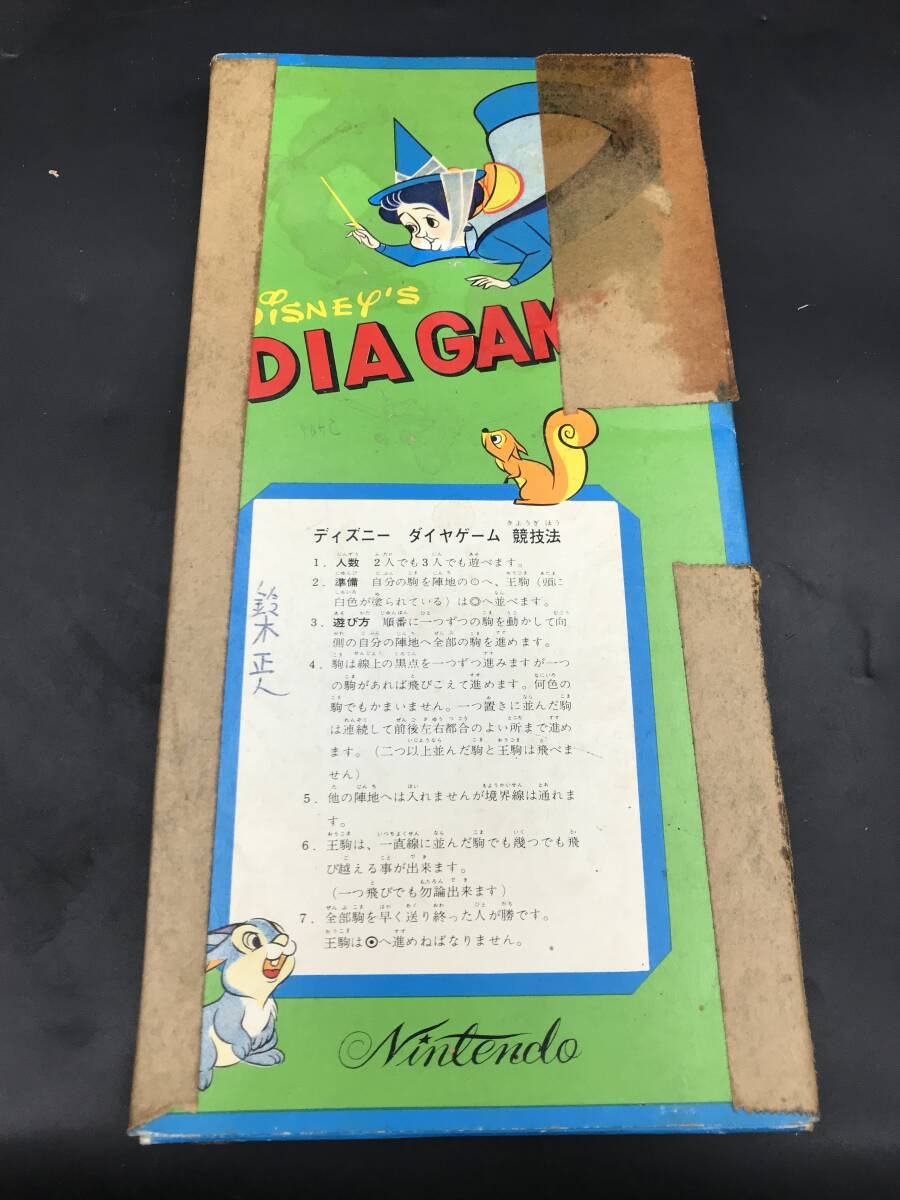 DISNEY'S
DIA GAM
ディズニー ダイヤゲーム 競技法
1. 人数 2人でも3人でも遊べます。
2. 準備 自分の駒を陣地の○へ、王駒(頭に
白色が塗られている)は◎へ並べます。
3. 遊び方 順番に一つずつの駒を動かして向
側の自分の陣地へ全部の駒を進めます。
4. 駒は線上の黒点を一つずつ進みますが一つ
の駒があれば飛びこえて進めます。何色の
駒でもかまいません。一つ置きに並んだ駒
は連続して前後左右都合のよい所まで進め
ます。(二つ以上並んだ駒と王駒は飛べま
せん)
5. 他の陣地へは入れませんが境界線は通れま
す。
6. 王駒は、一直線に並んだ駒でも幾つでも飛
び越える事が出来ます。
(一つ飛びでも勿論出来ます)
7. 全部駒を早く送り終った人が勝です。
王駒は◉へ進めねばなりません。
鈴木正人
Nintendo